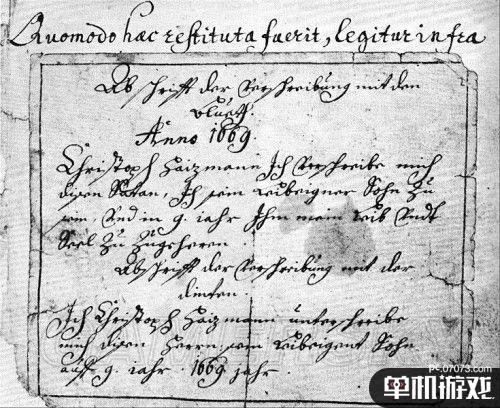 Quomodo hæc restituta fuerit, legitur infra
Abschrifft der Verschreibung mit den
Bluett.
Anno 1669.
Christoph Haizmann Ich Verschreibe mich
disen Satan, Ich sein leibeigner Sohn Zu
sein, Vnd in 9. iahr Ihm mein leib Vndt
Seel Zu Zugeheren.
Abschrifft der Verschreibung mit der
dinten.
Ich Christoph Haizmann unterschreibe
mich disen Herrn sein leibeigent Sohn
auff 9. iahr. 1669 jahr.
pc.07073.com
单机游戏